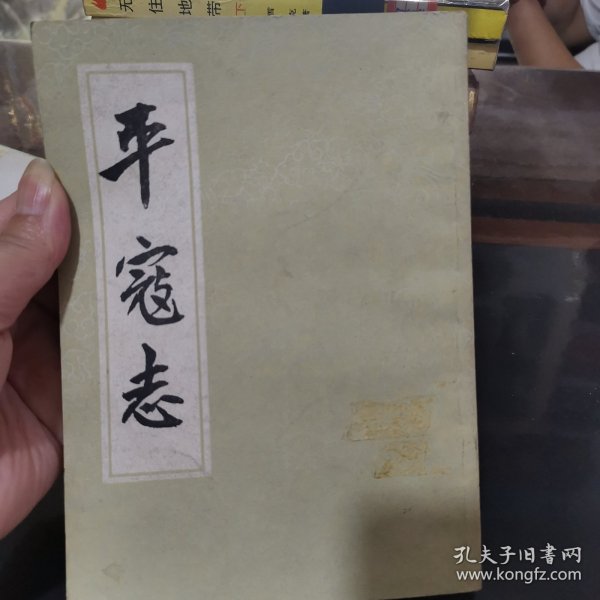 无
住
地
带
下
平寇志
孔夫子旧书网
www.kongfz.com